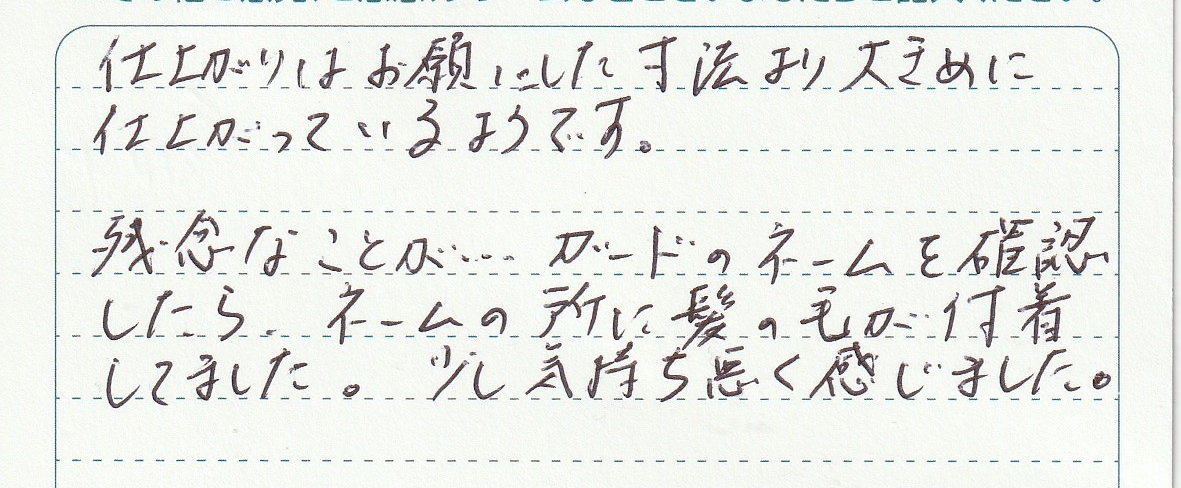 仕上がりはお願いした寸法より大きめに
仕上がっているようです。
残念なことが… ガードのネームを確認
したら、ネームの所に髪の毛が付着
してました。少し気持ち悪く感じました。